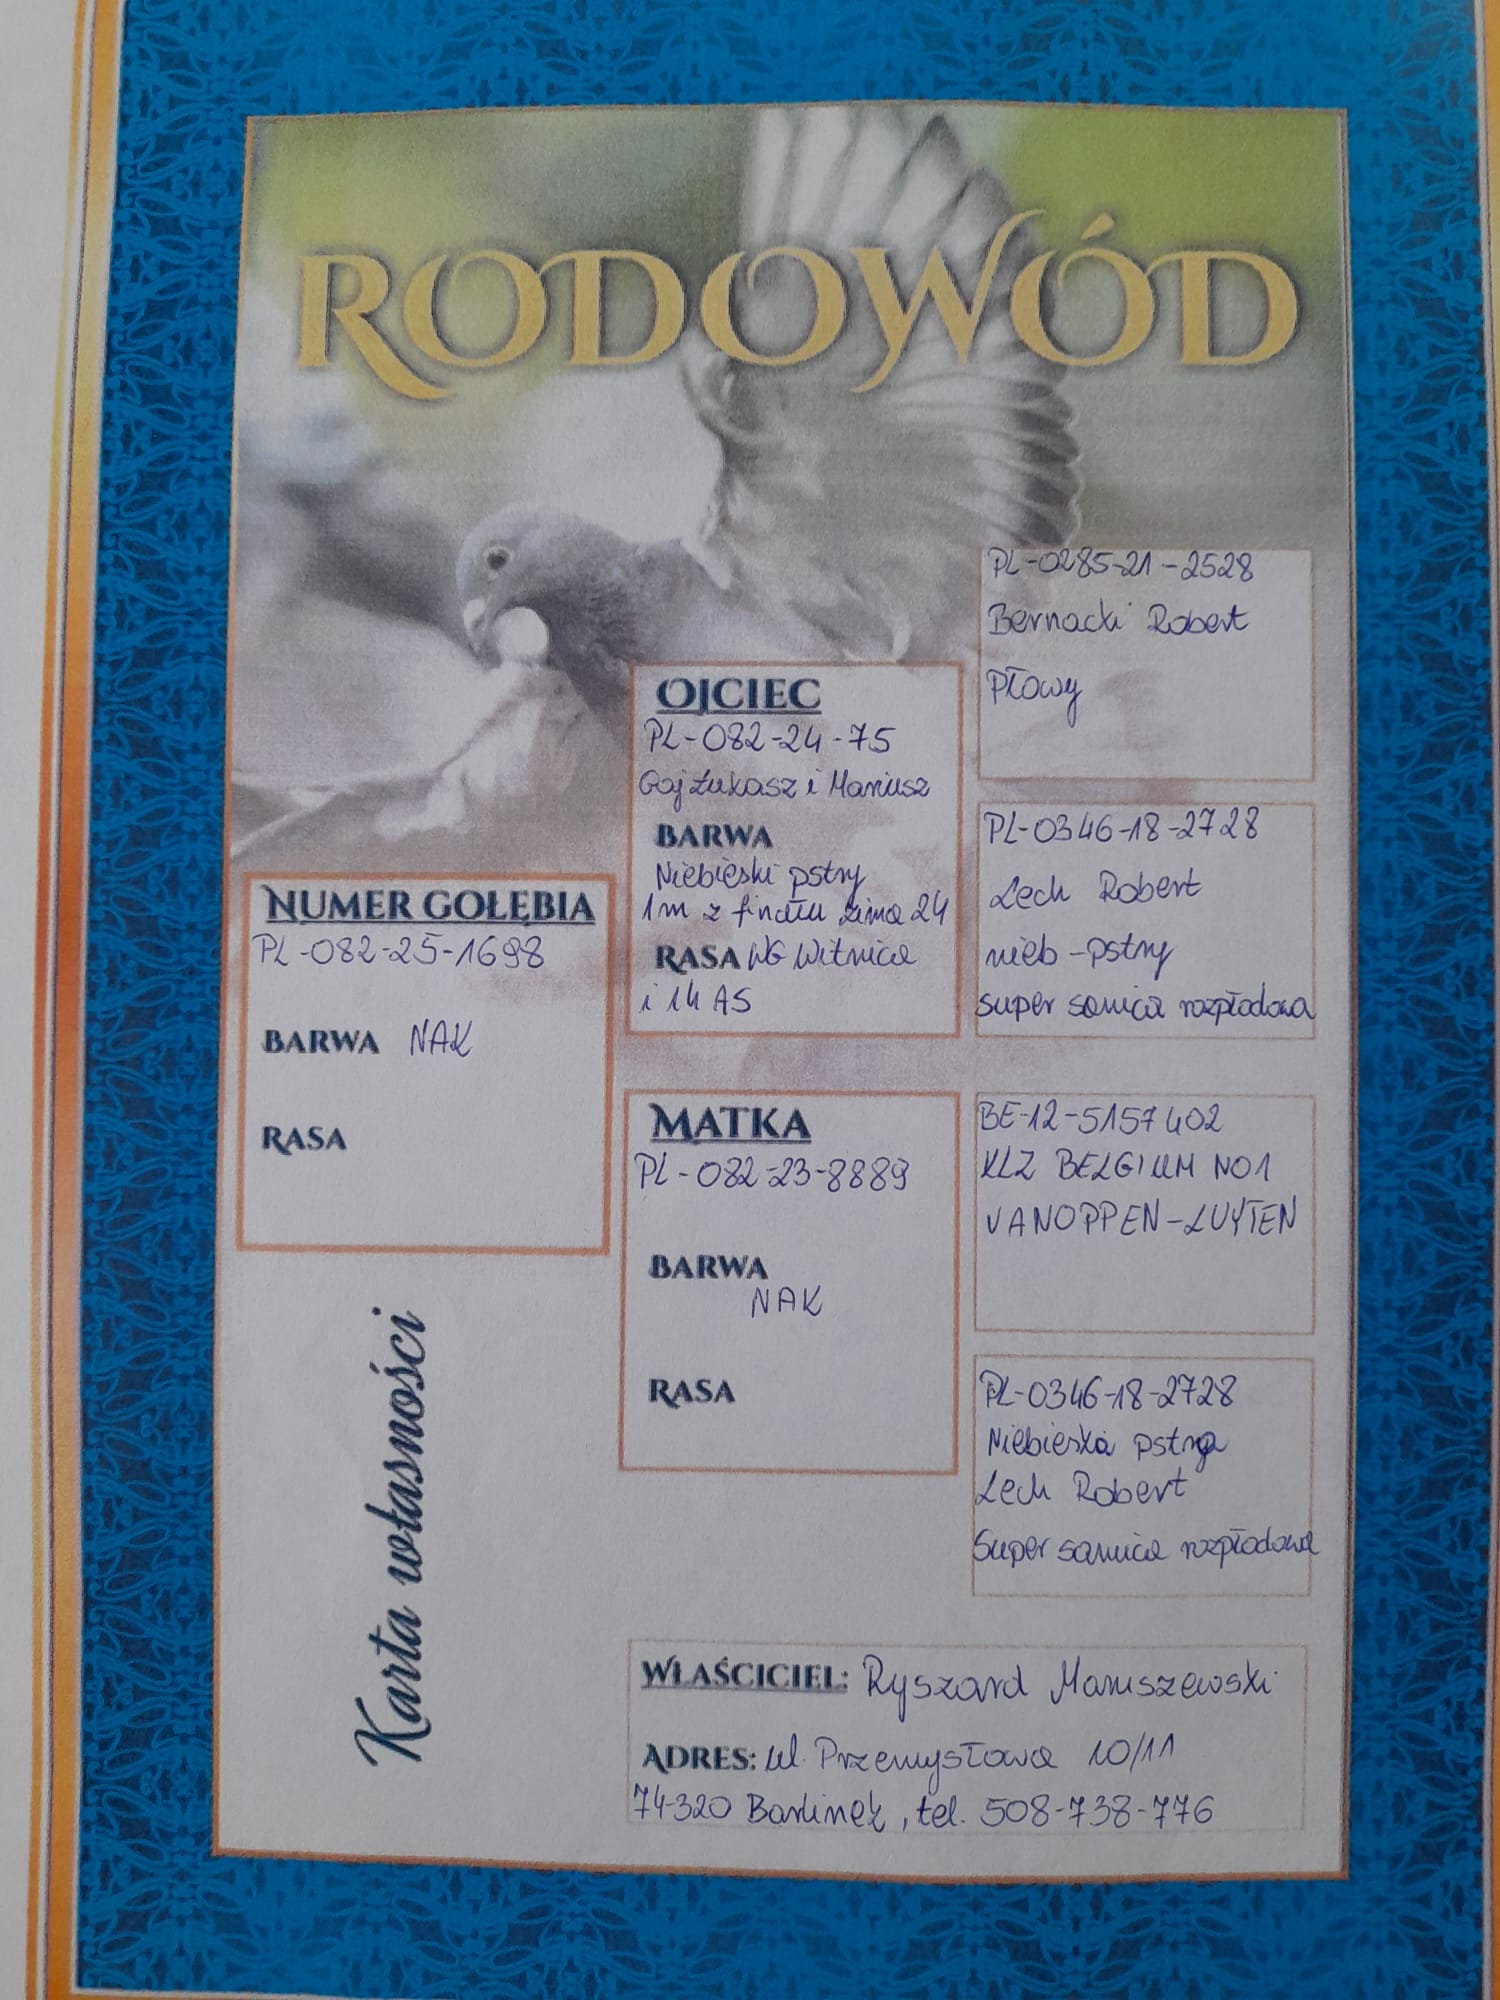 RODOWÓD
NUMER GOŁĘBIA
PL-082-25-1698
BARWA NAK
RASA
OJCIEC
PL-082-24-75
Gaj Łukasz i Mariusz
BARWA
Niebieski pstry
1m z finału zima 24
RASA WG Witnica
i 14 AS
MATKA
PL-082-23-8889
BARWA
NAK
RASA
PL-0285-21-2528
Bernacki Robert
Płowy
PL-0346-18-2728
Lech Robert
nieb-pstry
super samica rozpłodowa
BE-12-5157402
KLZ BELGIUM NO1
VANOPPEN-LUYTEN
PL-0346-18-2728
Niebieska pstra
Lech Robert
Super samica rozpłodowa
Karta własności
WŁAŚCICIEL: Ryszard Maruszewski
ADRES: ul. Przemysłowa 10/11
74-320 Barlinek, tel. 508-738-776